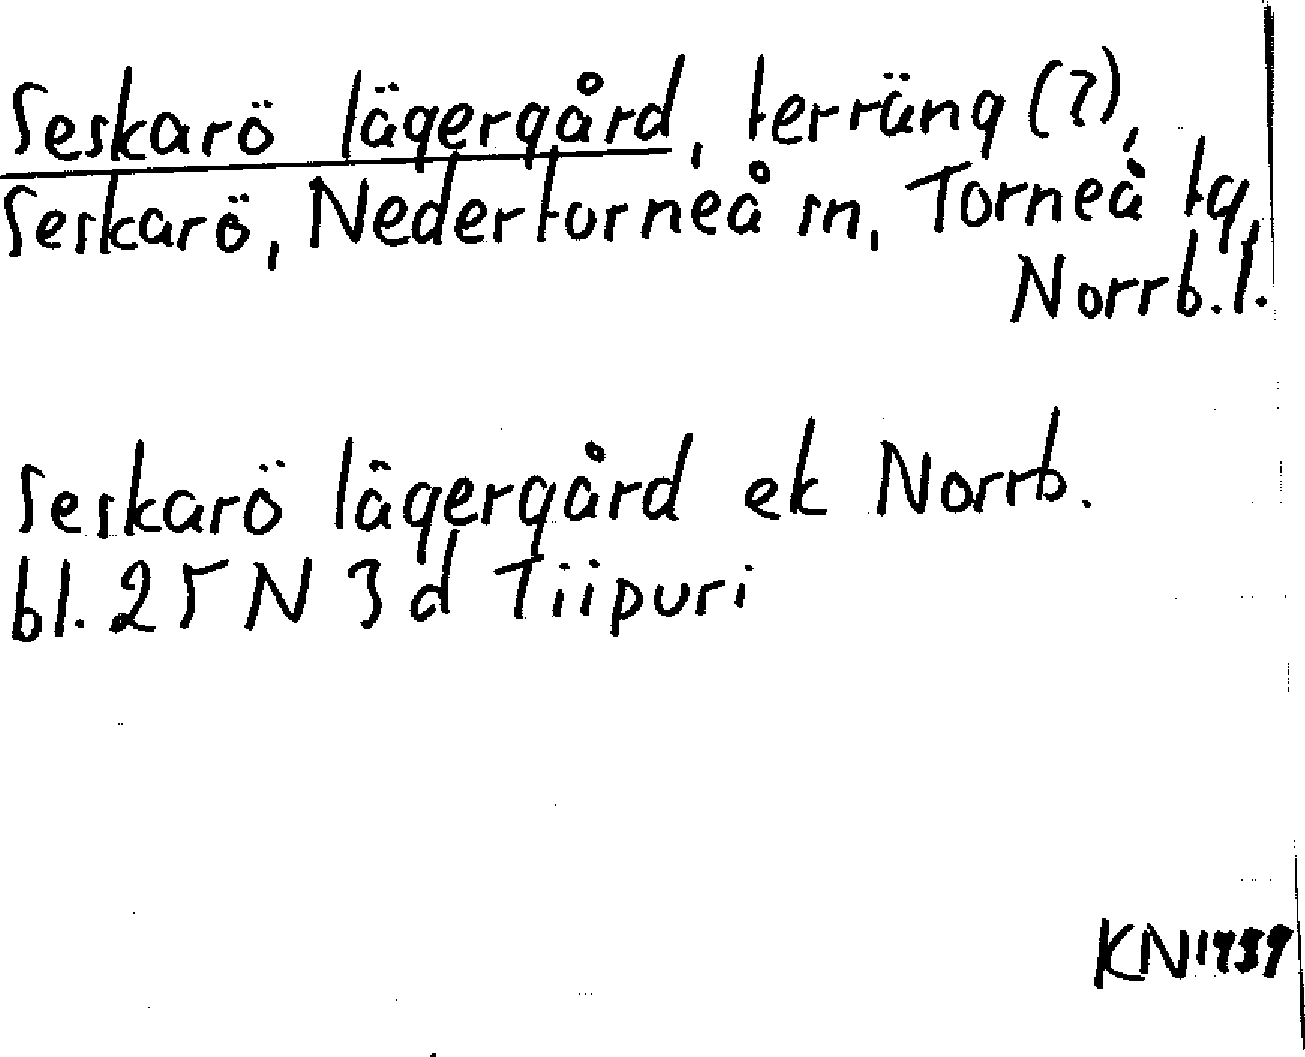 Seskarö lägergård, terräng (?),
Seskarö, Nedertorneå sn, Torneå tg,
Norrb. l.
Seskarö lägergård ek Norrb.
bl. 25 N 3 d Tiipuri
KN